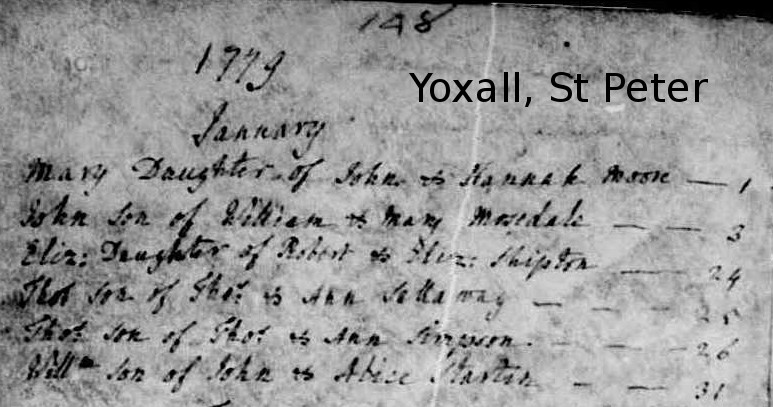 148
1779
Yoxall, St Peter
January
Mary Daughter of John & Hannah Moore — 1
John Son of William & Mary Mosedale — — 3
Eliz: Daughter of Robert & Eliz: Shipton — — 24
Thos Son of Thos & Ann — — 25
Thos son of Thos & Ann Simpson — — 26
Willm Son of John & Alice — — 31